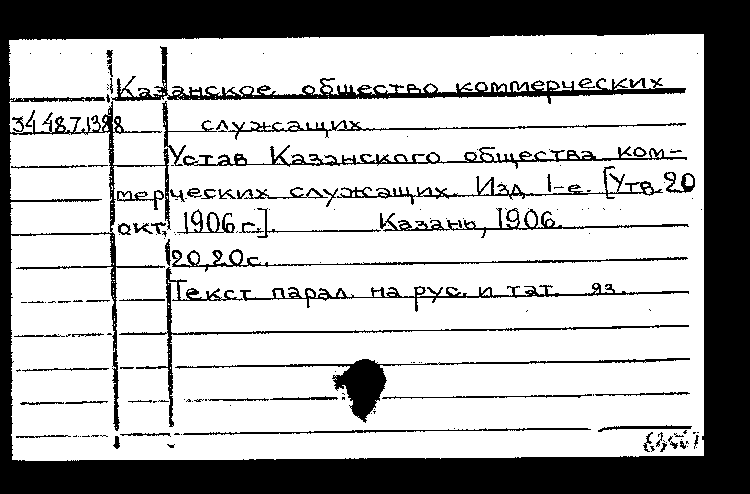 Казанское общество коммерческих
34.48.7.1388 служащих
Устав Казанского общества ком-
мерческих служащих. Изд. 1-е. [Утв. 20
окт. 1906 г.]. Казань, 1906.
20,20с.
Текст парал. на рус. и тат. яз.